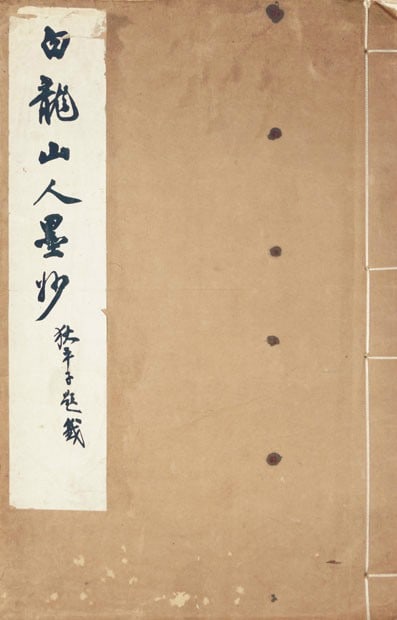 白龍山人墨妙
狄平子題籤